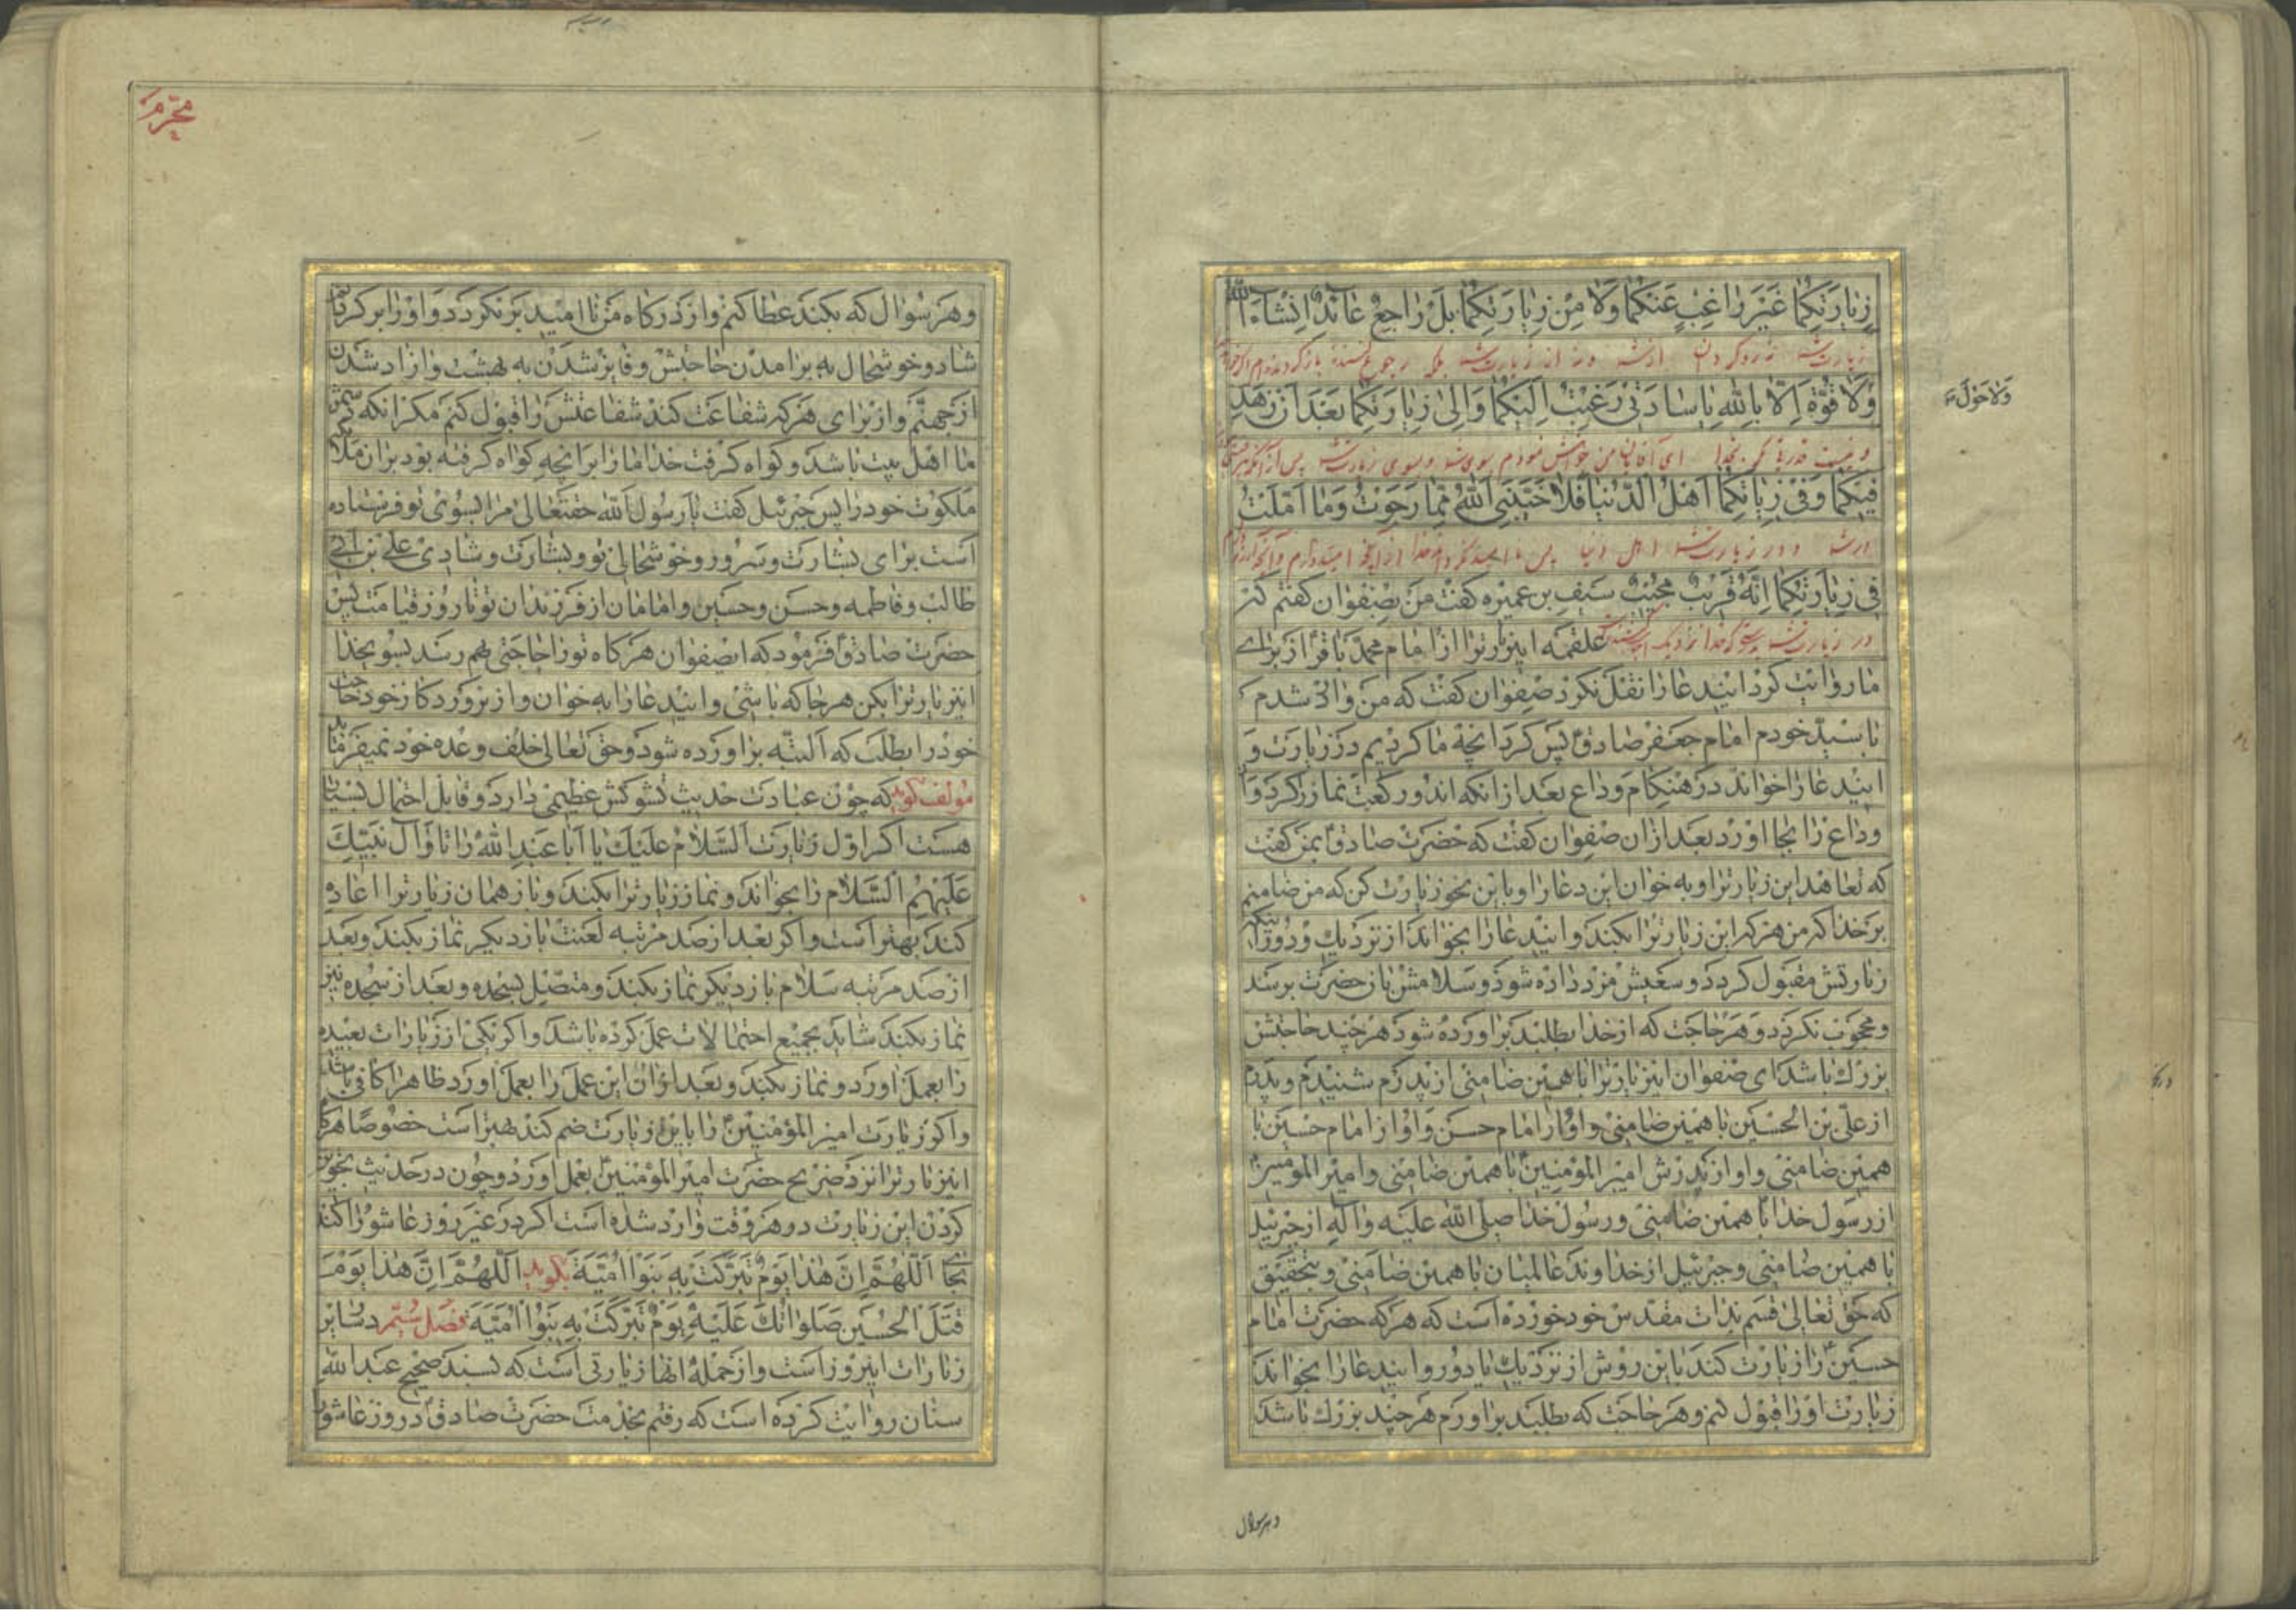 زِيارَتِكُما غَيْرَ راغِبٍ عَنْكُما وَلا مِنْ زِيارَتِكُما بَلْ راجِعٌ عائِدٌ اِنْشاءَ اللّٰه
زیارت شما
وَلا قُوَّةَ اِلّا بِاللّٰهِ يا سادَتى رَغِبْتُ اِلَيْكُما وَاِلىٰ زِيارَتِكُما بَعْدَ اَنْ زَهِدَ
وَلاحَوْلَ
فيكُما وَفى زِيارَتِكُما اَهْلُ الدُّنْيا فَلا خَيَّبَنِىَ اللّٰهُ مِمّا رَجَوْتُ وَما اَمَّلْتُ
فى زِيارَتِكُما اِنَّهُ قَرِيْبٌ مُجِيْبٌ سیف بن عمیره کفت من بصفوان کفتم که
علقمه این زیارترا از امام محمد باقر از برای
ما روایت کرد این دعا را نقل نکرد صفوان کفت که من وارد شدم
با سید خودم امام جعفر صادق پس کرد انچه ما کردیم در زیارت و
این دعا را خواند در هنکام وداع بعد از انکه دو رکعت نماز کرد و
وداع را بجا اورد بعد ازان صفوان کفت که حضرت صادق بمن کفت
که تعاهد این زیارترا و به خوان این دعا را و باین نحو زیارت کن که من ضامنم
بر خدا که من هرکه این زیارترا بکند و این دعا را بخواند از نزدیك و دور
زیارتش مقبول کردد و سعیش مزد داده شود و سلامش بان حضرت برسد
و محجوب نکردد و هر حاجت که از خدا بطلبد براورده شود هر چند حاجتش
بزرك باشد ای صفوان این زیارترا با همین ضامنی از پدرم شنیدم و پدرم
از علی بن الحسین با همین ضامنی و او از امام حسین با
همین ضامنی و او از پدرش امیر المؤمنین با همین ضامنی و امیر المؤمنین
از رسول خدا با همین ضامنی و رسول خدا صلی الله علیه و آله از جبرئیل
با همین ضامنی و جبرئیل از خداوند عالمیان با همین ضامنی و بتحقیق
که حق تعالی قسم بذات مقدس خود خورده است که هرکه حضرت امام
حسین را زیارت کند باین روش از نزدیك یا دور و این دعا را بخواند
زیارت او را قبول کنم و هر حاجت که بطلبد براورم هر چند بزرك باشد
و هر سوال
محرم
و هر سوال که بکند عطا کنم و از درکاه من نا امید برنکردد و او را برکردانم
شاد و خوشحال به برامدن حاجتش و فایز شدن به بهشت و ازاد شدن
از جهنم و از برای هرکه شفاعت کند شفاعتش را قبول کنم مکر انکه دشمن
ما اهل بیت باشد و کواه کرفت خدا ما را برانچه کواه کرفته بود بران ملائکه
ملکوت خود را پس جبرئیل کفت یا رسول الله حقتعالی مرا بسوی تو فرستاده
است برای بشارت و سرور و خوشحالی تو و بشارت و شادی علی بن ابی
طالب و فاطمه و حسن و حسین و امامان از فرزندان تو تا روز قیامت پس
حضرت صادق فرمود که ایصفوان هرکاه تو را حاجتی بهم رسد بسوی خدا
این زیارترا بکن هرجا که باشی و این دعا را به خوان و از پروردکار خود حاجت
خود را بطلب که البته براورده شود و حق تعالی خلف وعده خود نمیفرماید
مؤلف کوید که چون عبادت حدیث تشوکش عظیمی دارد و قابل احتمال بسیار
هست اکر اول زیارت اَلسَّلامُ عَلَيْكَ يا اَبا عَبْدِ اللّٰهِ را تا وَ آلِ نَبِيِّكَ
عَلَيْهِمُ السَّلام را بخواند و نماز زیارترا بکند و باز همان زیارترا اعاده
کند بهتر است و اکر بعد از صد مرتبه لعنت باز دیکر نماز بکند و بعد
از صد مرتبه سلام باز دیکر نماز بکند و متصل بسجده و بعد از سجده نیز
نماز بکند شاید بجمیع احتمالات عمل کرده باشد و اکر یکی از زیارات بعیده
را بعمل اورد و نماز بکند و بعد ازان این عمل را بعمل اورد ظاهرا کافی باشد
و اکر زیارت امیر المؤمنین را باین زیارت ضم کند بهتر است خصوصا هرکاه
این زیارترا نزد ضریح حضرت امیر المؤمنین بعمل اورد و چون در حدیث تجویز
کردن این زیارت در هر وقت وارد شده است اکر در غیر روز عاشورا کند
بجای اَللّٰهُمَّ اِنَّ هٰذا يَوْمٌ تَبَرَّكَتْ بِهِ بَنُوْ اُمَيَّةَ بکوید اَللّٰهُمَّ اِنَّ هٰذا يَوْمَ
قَتْلِ الْحُسَيْنِ صَلَواتُكَ عَلَيْهِ يَوْمٌ تَبَرَّكَتْ بِهِ بَنُوْ اُمَيَّةَ فصل ششم در سایر
زیارات این روز است و از جمله انها زیارتی است که بسند صحیح عبد الله
سنان روایت کرده است که رفتم بخدمت حضرت صادق در روز عاشورا